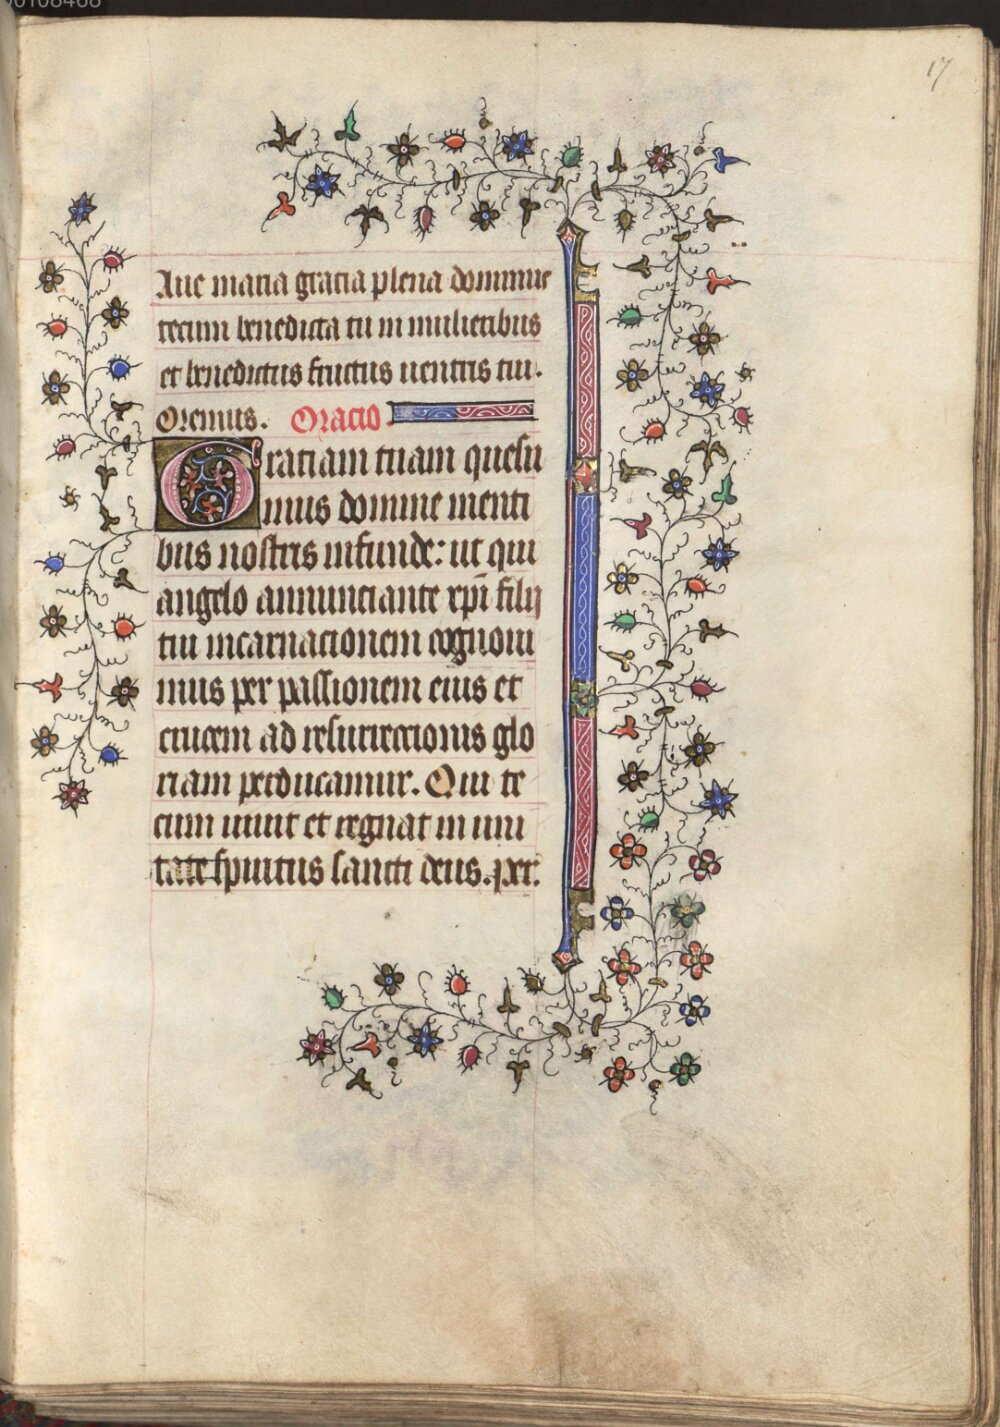 00108468
17
Aue maria gracia plena dominue
tecum benedicta tu in mulieribus
et benedictus fructus uentris tui.
Oremus. Oracio
Gratiam tuam quesu
mus domine menti
bus nostris infunde: ut qui
angelo annunciante xp̄i filij
tui incarnacionem cognoui
mus per passionem eius et
crucem ad resurrectionis glo
riam perducamur. Qui te
cum uiuit et regnat in uni
tate spiritus sancti deus. per.